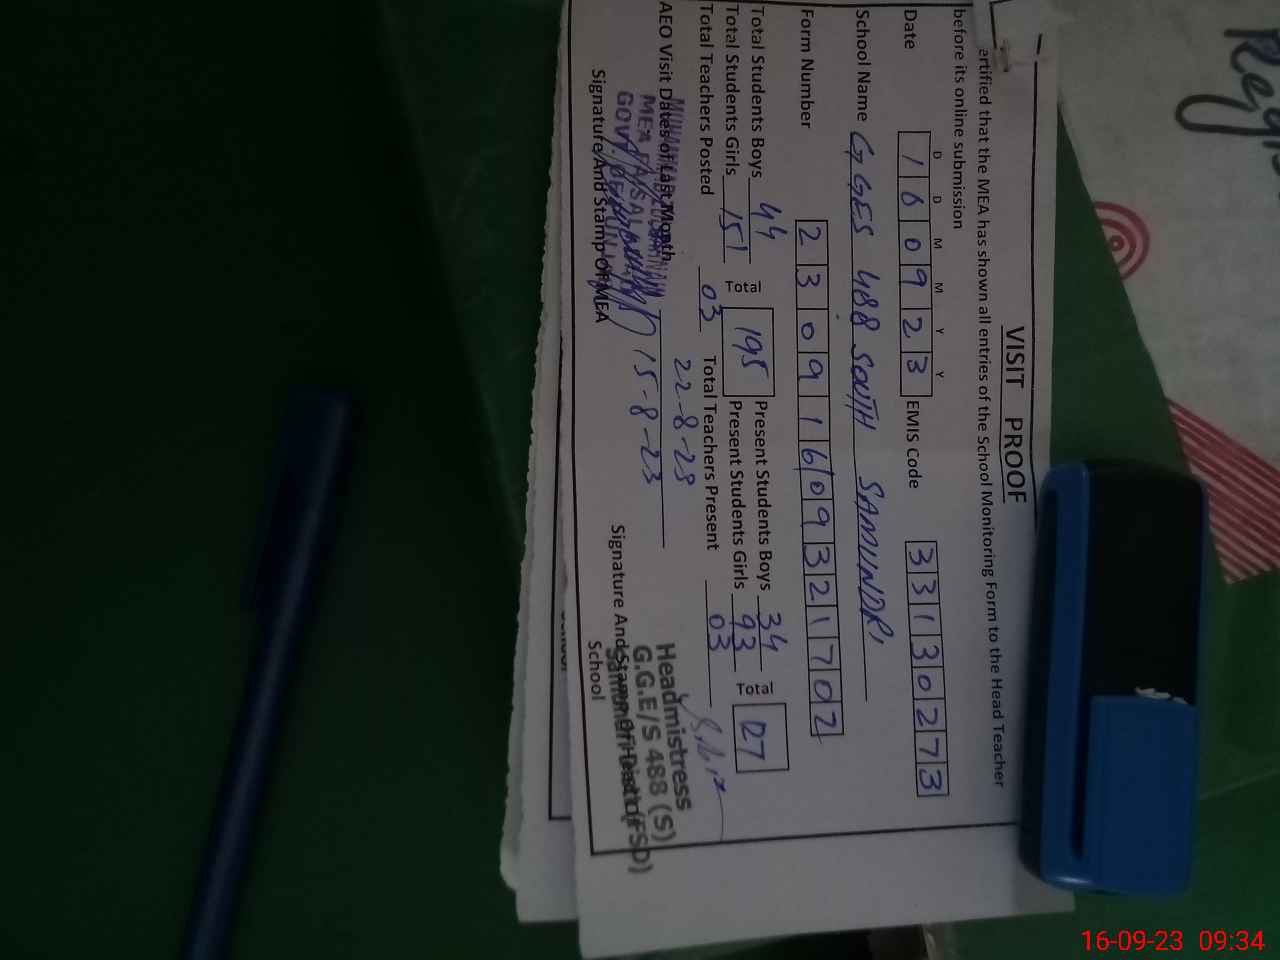 VISIT PROOF
ertified that the MEA has shown all entries of the School Monitoring Form to the Head Teacher
before its online submission
D D M M Y Y
Date 1 6 0 9 2 3 EMIS Code 3 3 1 3 0 2 7 3
School Name GGES 488 SOUTH SAMUNDRI
Form Number 2 3 0 9 1 6 0 9 3 2 1 7 0 2
Total Students Boys 44 Total 195 Present Students Boys 34 Total 127
Total Students Girls 151 Present Students Girls 93
Total Teachers Posted 03 Total Teachers Present 03
22-8-23
AEO Visit Dates of Last Month 15-8-23
MEA FAISAL
GOVT
Signature And Stamp Of MEA
Headmistress
G.G.E/S 488 (S)
Samundri Distt (FSD)
Signature And Stamp Of Head Of
School
16-09-23 09:34